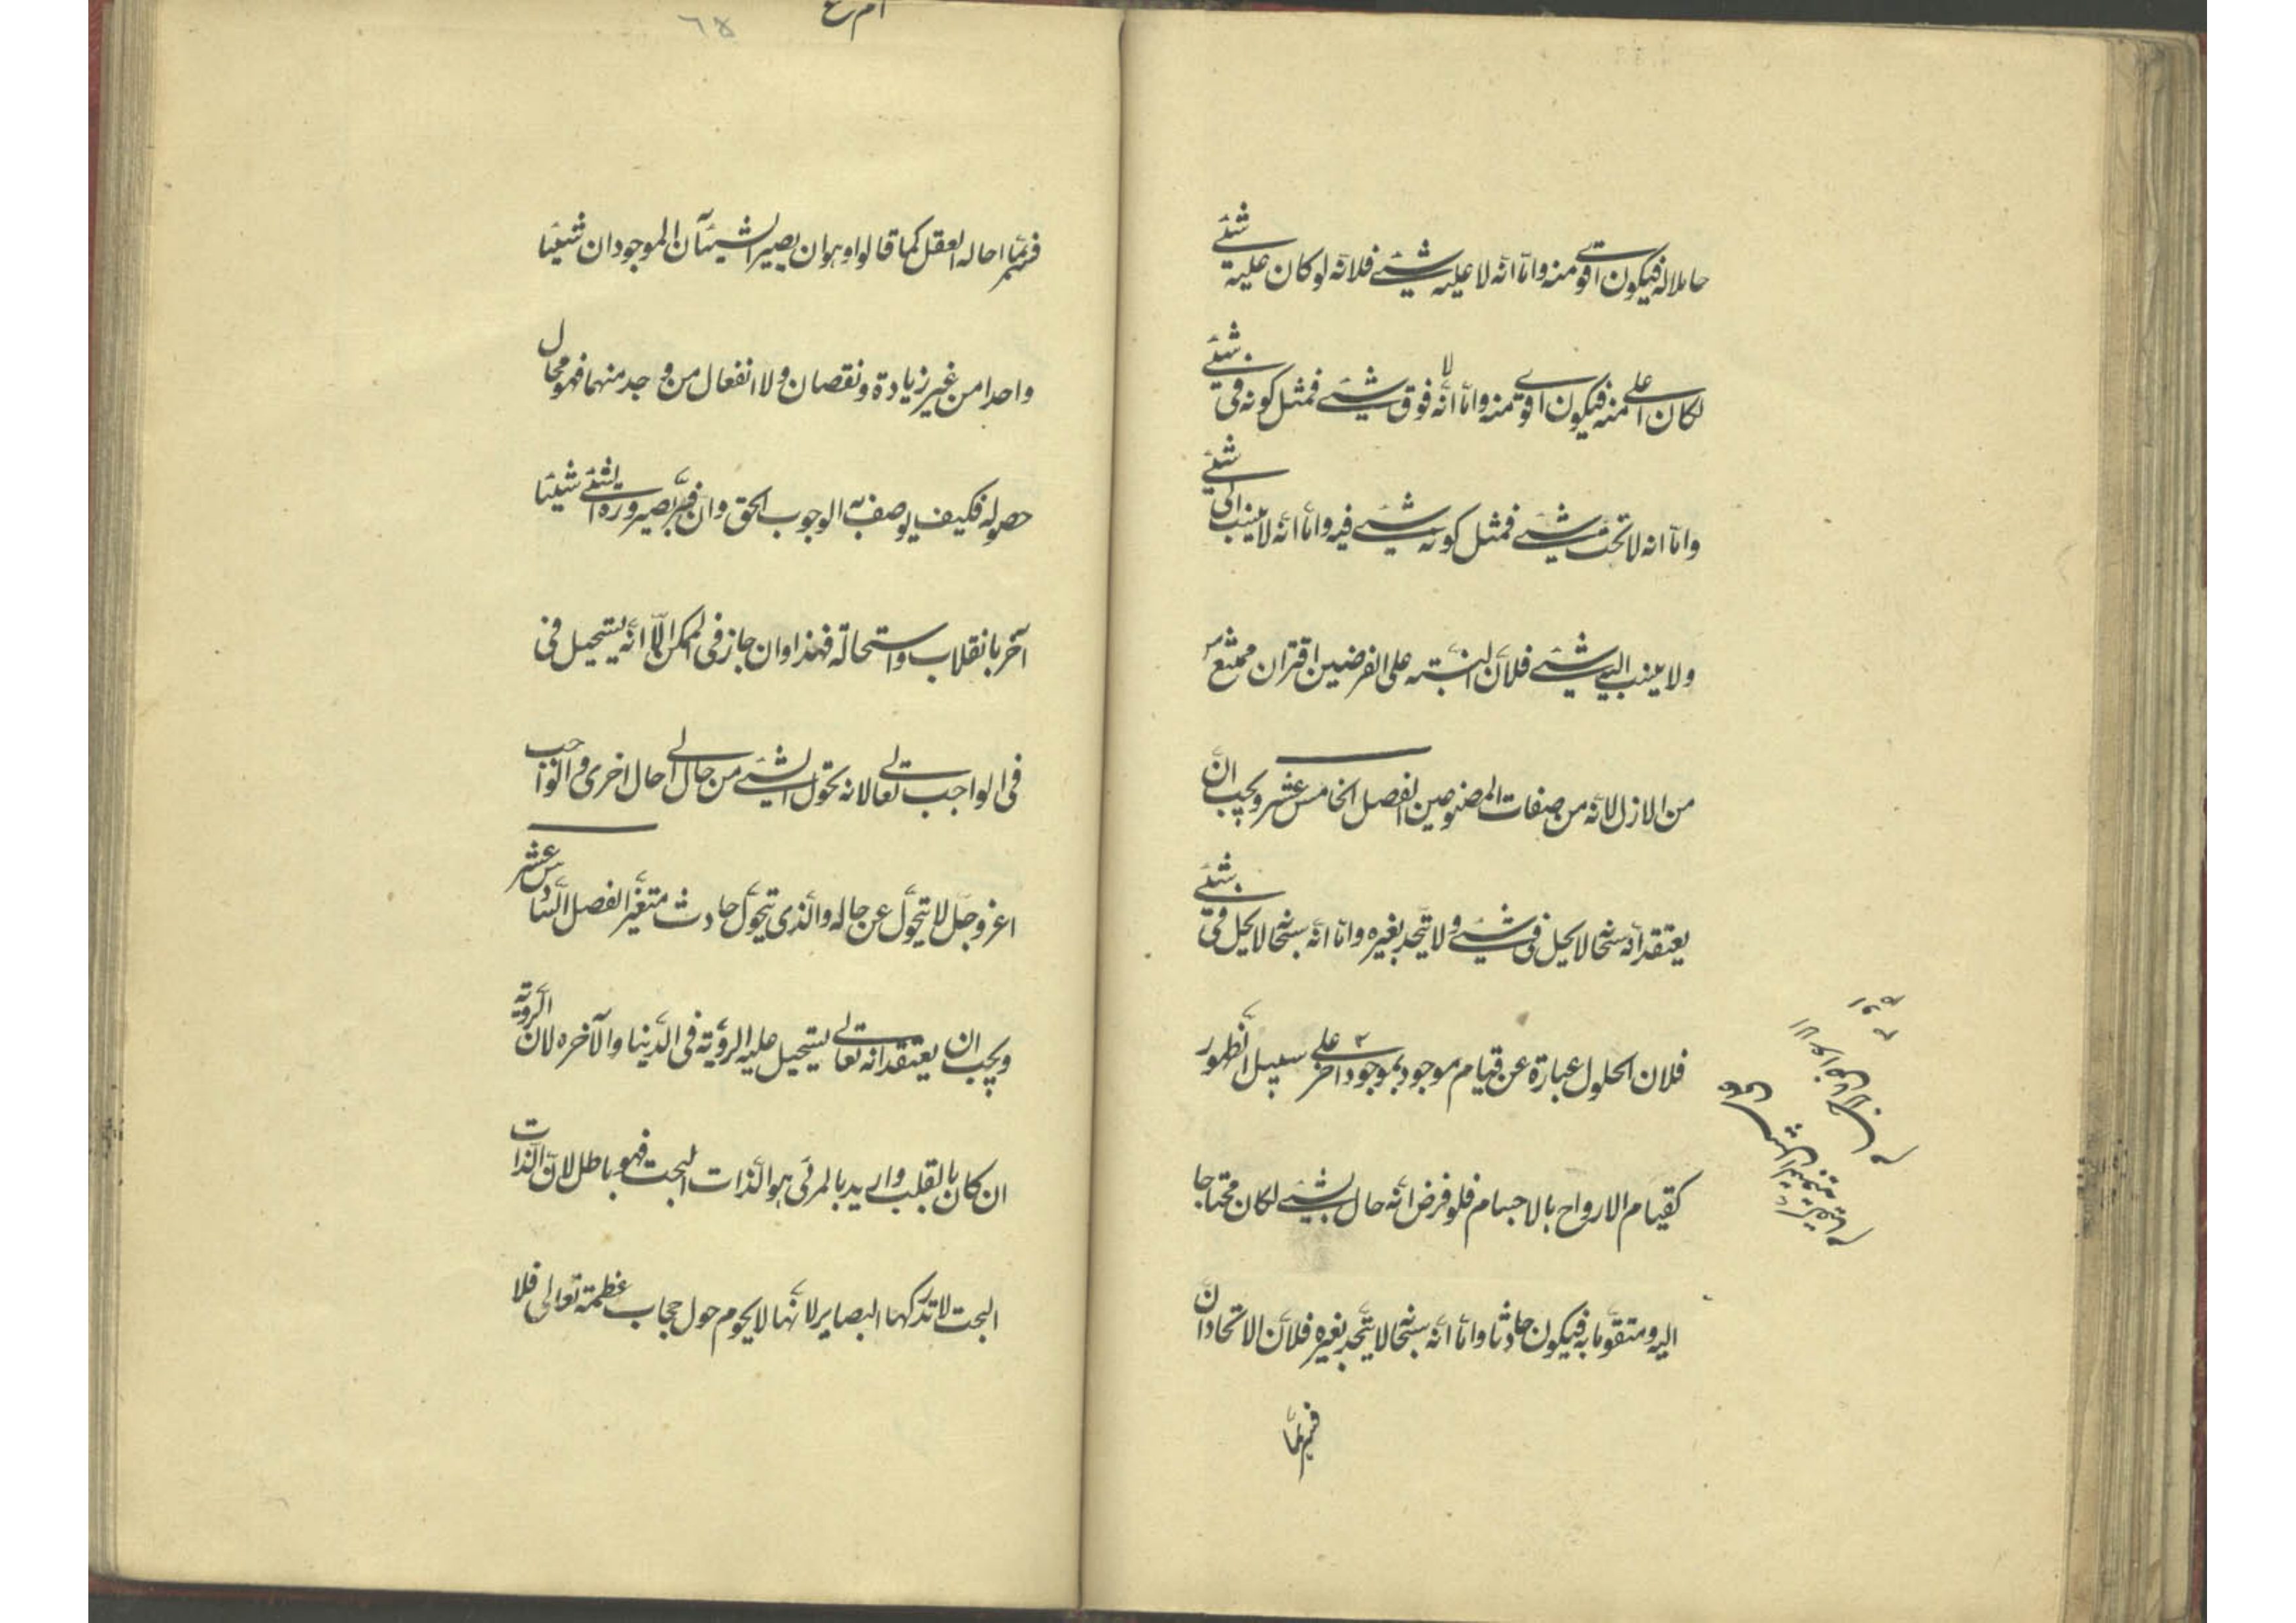 حاملا له فيكون اقوى منه واما انه لا عليه شيئ فلانه لو كان عليه شيئ
لكان اعلى منه فيكون اقوى منه واما انه لا فوق شيئ فمثل كونه فى شيئ
واما انه لا تحت شيئ فمثل كونه شيئ فيه واما انه لا ينسب الى شيئ
ولا ينسب اليه شيئ فلان النسبته على الفرضيين اقتران ممتنع
من الازل لانه من صفات المصنوعين الفصل الخامس عشر ويجب ان
يعتقد انه سبحانه لا يحل فى شيئ ولا يتحد بغيره واما انه سبحانه لا يحل فى شيئ
فلان الحلول عبارة عن قيام موجود بموجود اخر على سبيل الظهور
كقيام الارواح بالاجسام فلو فرض انه حال بشيئ لكان محتاجا
اليه ومتقوما به فيكون حادثا واما انه سبحانه لا يتحد بغيره فلان الاتحاد ان
فسر بما
٦٥
فسر بما احاله العقل كما قالوا وهو ان يصير الشيئآن الموجودان شيئا
واحدا من غير زيادة ونقصان ولا انفعال من وجد منهما فهو محال
حصوله فكيف يوصف به الوجوب الحق وان فسر بصيرورة الشئ شيئا
آخر بانقلاب واستحالة فهذا وان جاز فى الممكن الا انه يستحيل فى
فى الواجب تعالى لانه تحول الشيئ من حال الى حال اخرى والواجب
اعز وجل لا يتحول عن حاله والذى يتحول حادث متغير الفصل السادس عشر
ويجب ان يعتقد انه تعالى يستحيل عليه الرؤية فى الدنيا والآخره لان الرؤية
ان كان بالقلب واريد بالمرئى هو الذات البحت فهو باطل لان الذات
البحت لا تدركها البصاير لانها لا يحوم حول حجاب عظمته تعالى فلا